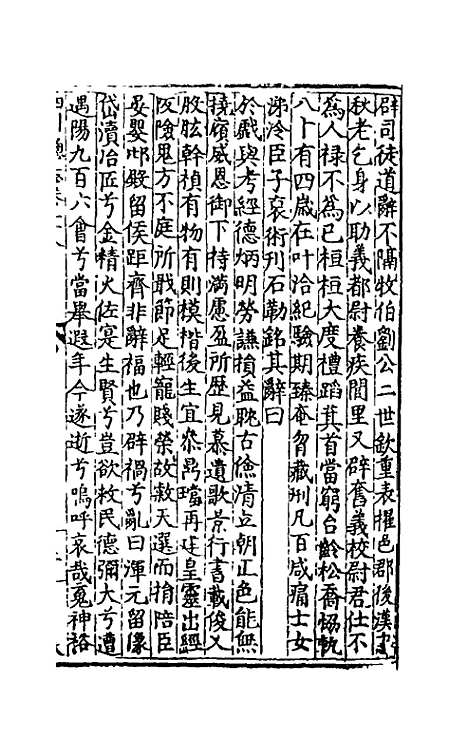 辟司徒道辭不隔牧伯劉公二世欽重表擢邑郡後漢中
秋老乞身以助義都尉養疾閭里又辟舊義校尉君仕不
為人禄不為已桓桓大度禮蹈萁首當窮台齡松喬恊軌
八卜有四歲在叶洽紀驗期臻奄曶藏刑凡百咸痛士女
涕泠臣子裒術刋石勒銘其辭曰
於戲與考經德炳明勞謙損益耽古儉清立朝正色能無
撓嵿威恩御下持滿愿盈所歷見慕遺歌景行書載俊乂
股肱幹楨有物有則模楷後生宜叅鼎璫再建皇靈出經
阪險鬼方不庭所戢節足輕寵賤榮故敘天選而捐陪臣
晏嬰邴殿留侯距齊非辭福也乃辟禍兮亂曰渾元留像
岱瀆冶匠兮金精火佐寔生賢兮豈欲救民德彌大兮遭
遇陽九百六會兮當舉遐年今遂逝兮嗚呼哀哉䰟神裕